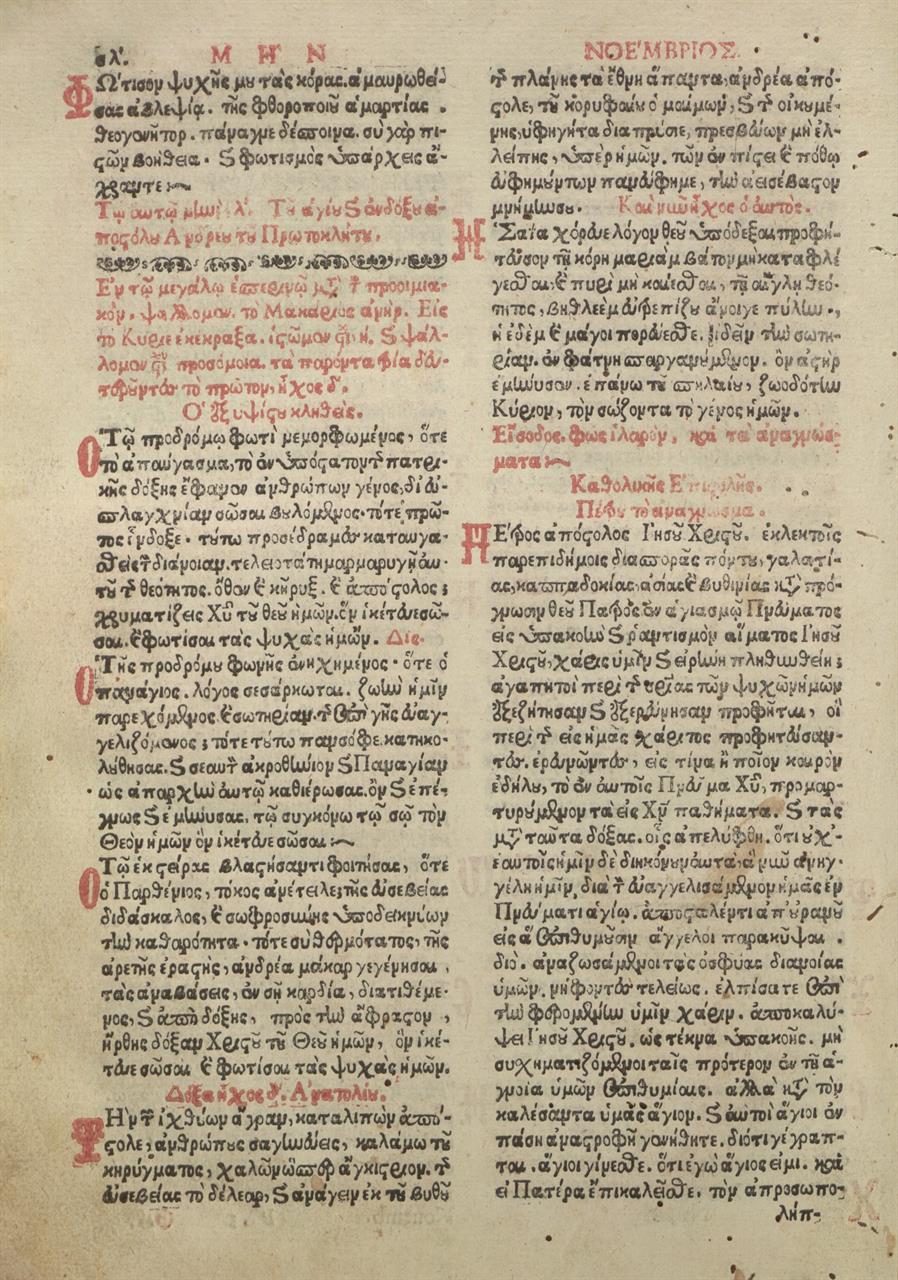 λʹ. ΜΗΝ
Φώτισον ψυχῆς μου τὰς κόρας. ἀμαυρωθεί-
σας ἀβλεψίᾳ. τῆς φθοροποιοῦ ἁμαρτίας.
θεογεννῆτορ. πάναγνε δέσποινα. σὺ γὰρ πι-
στῶν βοήθεια. καὶ φωτισμὸς ὑπάρχεις ἄ-
χραντε
Τῷ αὐτῷ μηνὶ λʹ. Τοῦ ἁγίου καὶ ἐνδόξου ἀ-
ποστόλου Ἀνδρέου τοῦ Πρωτοκλήτου.
Ἐν τῷ μεγάλῳ ἑσπερινῷ μετὰ τὸν προοιμια-
κόν. ψάλλομεν. τὸ Μακάριος ἀνήρ. Εἰς
τὸ Κύριε ἐκέκραξα. ἱστῶμεν στίχους η. καὶ ψάλ-
λομεν στιχηρὰ προσόμοια. τὰ παρόντα τρία δευ-
τεροῦντες τὸ πρῶτον, ἦχος δʹ.
Ὁ ἐξ ὑψίστου κληθείς.
Ὁ Τῷ προδρόμῳ φωτὶ μεμορφωμένος, ὅτε
τὸ ἀπαύγασμα, τὸ ἐνυπόστατον τῆς πατρι-
κῆς δόξης ἔφανεν ἀνθρώπων γένος, δι' εὐ-
σπλαγχνίαν σῶσαι βουλόμενος. τότε πρῶ-
τος ἔνδοξε. τούτῳ προσέδραμες καταυγα-
σθεὶς τὴν διάνοιαν. τελειοτάτῃ μαρμαρυγῇ αὐ-
τοῦ τῆς θεότητος. ὅθεν καὶ κῆρυξ. καὶ ἀπόστολος;
χρηματίζεις Χῦ τοῦ θεοῦ ἡμῶν. ὃν ἱκέτευε σῶ-
σαι. καὶ φωτίσαι τὰς ψυχὰς ἡμῶν. Δίς.
Ὁ Τῆς προδρόμου φωνῆς ἐνηχημένος. ὅτε ὁ
πανάγιος. λόγος σεσάρκωται. ζωὴν ἡμῖν
παρεχόμενος. καὶ σωτηρίαν. τοῖς ἐπὶ γῆς εὐαγ-
γελιζόμενος; τότε τούτῳ πάνσοφε. κατηκο-
λούθησας. καὶ σεαυτὸν ἀκροθίνιον καὶ παναγίαν
ὡς ἀπαρχὴν αὐτῷ καθιέρωσας. ὃν καὶ ἐπέ-
γνως καὶ ἐμήνυσας. τῷ συγκόνῳ τῷ σῷ τὸν
Θεὸν ἡμῶν ὃν ἱκέτευε σῶσαι
Ὁ Τῷ ἐκ στείρας βλαστήσαντι φοιτήσας, ὅτε
ὁ Παρθένιος, τόκος ἀνέτειλε; τῆς εὐσεβείας
διδάσκαλος, καὶ σωφροσύνης ὑποδεικνύων
τὴν καθαρότητα. τότε σὺ θερμότατος, τῆς
ἀρετῆς ἐραστής, ἀνδρέα μάκαρ γεγένησαι,
τὰς ἀναβάσεις, ἐν σῇ καρδίᾳ, διατιθέμε-
νος, καὶ ἀπὸ δόξης, πρὸς τὴν ἄφραστον,
ἤρθης δόξαν Χριστοῦ τοῦ Θεοῦ ἡμῶν, ὃν ἱκέ-
τευε σῶσαι καὶ φωτίσαι τὰς ψυχὰς ἡμῶν.
Δόξα ἦχος δʹ. Ἀνατολίου.
Τὴν τῶν ἰχθύων ἄγραν, καταλιπὼν ἀπό-
στολε, ἀνθρώπους σαγηνεύεις, καλάμῳ τοῦ
κηρύγματος, χαλῶν ὥσπερ ἄγκιστρον. τῆς
εὐσεβείας τὸ δέλεαρ, καὶ ἀνάγειν ἐκ τοῦ βυθοῦ
ΝΟΕΜΒΡΙΟΣ
τῆς πλάνης τὰ ἔθνη ἅπαντα, ἀνδρέα ἀπό-
στολε, τοῦ κορυφαίου ὁμαίμων, καὶ τῆς οἰκουμέ-
νης, ὑφηγητὰ διαπρύσιε, πρεσβεύων μὴ ἐλ-
λείπῃς, ὑπὲρ ἡμῶν. τῶν ἐν πίστει καὶ πόθῳ
εὐφημούντων πανεύφημε, τὴν ἀεισέβαστον
μνήμην σου. Καὶ νῦν ἦχος ὁ αὐτός.
Ἡσαΐα χόρευε λόγον θεοῦ ὑπόδεξαι, προφή-
τευσον τῇ κόρῃ μαριὰμ βάτον μὴ καταφλέ
γεσθαι, καὶ πυρὶ μὴ καίεσθαι, τῇ αἴγλῃ θεό-
τητος, βηθλεὲμ εὐτρεπίζου ἄνοιγε πύλην.,
ἡ ἐδὲμ καὶ μάγοι πορεύεσθε. ἰδεῖν τὴν σωτη-
ρίαν. ἐν φάτνῃ σπαργανούμενον. ὃν ἀστὴρ
ἐμήνυσεν. ἐπάνω τοῦ σπηλαίου, ζωοδότην
Κύριον, τὸν σώζοντα τὸ γένος ἡμῶν.
Εἴσοδος. φῶς ἱλαρόν, καὶ τὰ ἀναγνώσ-
ματα
Καθολικῆς Ἐπιστολῆς.
Πέτρου τὸ ἀνάγνωσμα.
Πέτρος ἀπόστολος Ἰησοῦ Χριστοῦ. ἐκλεκτοῖς
παρεπιδήμοις διασπορᾶς πόντου, γαλατί-
ας, καππαδοκίας, ἀσίας καὶ βυθινίας κατὰ πρό-
γνωσιν θεοῦ Πατρὸς ἐν ἁγιασμῷ Πνεύματος
εἰς ὑπακοὴν καὶ ῥαντισμὸν αἵματος Ἰησοῦ
Χριστοῦ, χάρις ὑμῖν καὶ εἰρήνη πληθυνθείη;
ἀγαπητοὶ περὶ τῆς σωτηρίας τῶν ψυχῶν ἡμῶν
ἐξεζήτησαν καὶ ἐξερεύνησαν προφῆται, οἱ
περὶ τῆς εἰς ἡμᾶς χάριτος προφητεύσαν-
τες. ἐρευνῶντες, εἰς τίνα ἢ ποῖον καιρὸν
ἐδήλου, τὸ ἐν αὐτοῖς Πνεῦμα Χῦ, προμαρ-
τυρούμενον τὰ εἰς Χν παθήματα. καὶ τὰς
μετὰ ταῦτα δόξας. οἷς ἀπελύφθη. ὅτι οὐχ'
ἑαυτοῖς ἡμῖν δὲ διηκόνουν αὐτά, ἃ νῦν ἀνηγ-
γέλη ἡμῖν, διὰ τῶν εὐαγγελισαμένων ἡμᾶς ἐν
Πνεύματι ἁγίῳ. ἀποσταλέντι ἀπ' οὐρανοῦ
εἰς ἃ ἐπιθυμοῦσιν ἄγγελοι παρακύψαι.
διό. ἀναζωσάμενοι τὰς ὀσφύας διανοίας
ὑμῶν. νήφοντες τελείως. ἐλπίσατε ἐπὶ
τὴν φερομένην ὑμῖν χάριν. ἀποκαλύ-
ψει Ἰησοῦ Χριστοῦ. ὡς τέκνα ὑπακοῆς. μὴ
συσχηματιζόμενοι ταῖς πρότερον ἐν τῇ ἀ-
γνοίᾳ ὑμῶν ἐπιθυμίαις. ἀλλὰ κατὰ τὸν
καλέσαντα ὑμᾶς ἅγιον. καὶ αὐτοὶ ἅγιοι ἐν
πάσῃ ἀναστροφῇ γενήθητε. διότι γέγραπ-
ται. ἅγιοι γίνεσθε. ὅτι ἐγὼ ἅγιός εἰμι. καὶ
εἰ Πατέρα ἐπικαλεῖσθε. τὸν ἀπροσωπο-
λήπ-